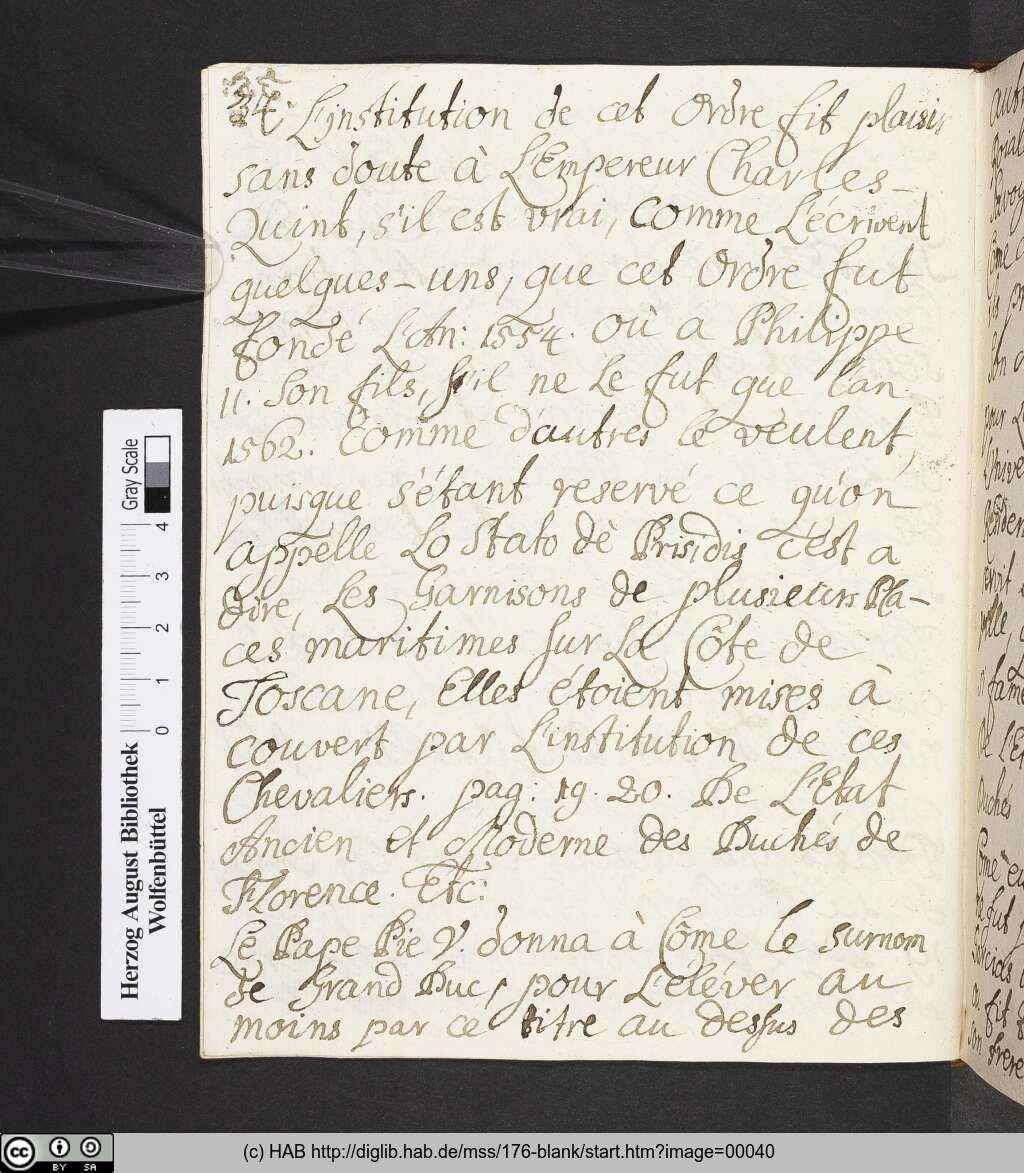 34. L'institution de cet Ordre fit plaisir
sans doute à L'Empereur Charles-
Quint, s'il est vrai, comme L'écrivent
quelques-uns, que cet Ordre fut
fondé L'An: 1554. où a Philippe
II. son fils, s'il ne le fut que l'an
1562. Comme d'autres le veulent,
puisque s'étant reservé ce qu'on
appelle Lo Stato dè Prisidis c'est a
dire, Les Garnisons de plusieurs Pla-
ces maritimes sur La Côte de
Toscane, Elles étoient mises à
couvert par L'institution de ces
Chevaliers. pag: 19. 20. De L'Etat
Ancien et Moderne des Duchés de
Florence. Etc:
Le Pape Pie V. donna à Côme le surnom
de Grand Duc, pour L'éléver au
moins par ce titre au dessus des
Gray Scale
0 1 2 3 4
Herzog August Bibliothek
Wolfenbüttel
BY SA
(c) HAB http://diglib.hab.de/mss/176-blank/start.htm?image=00040